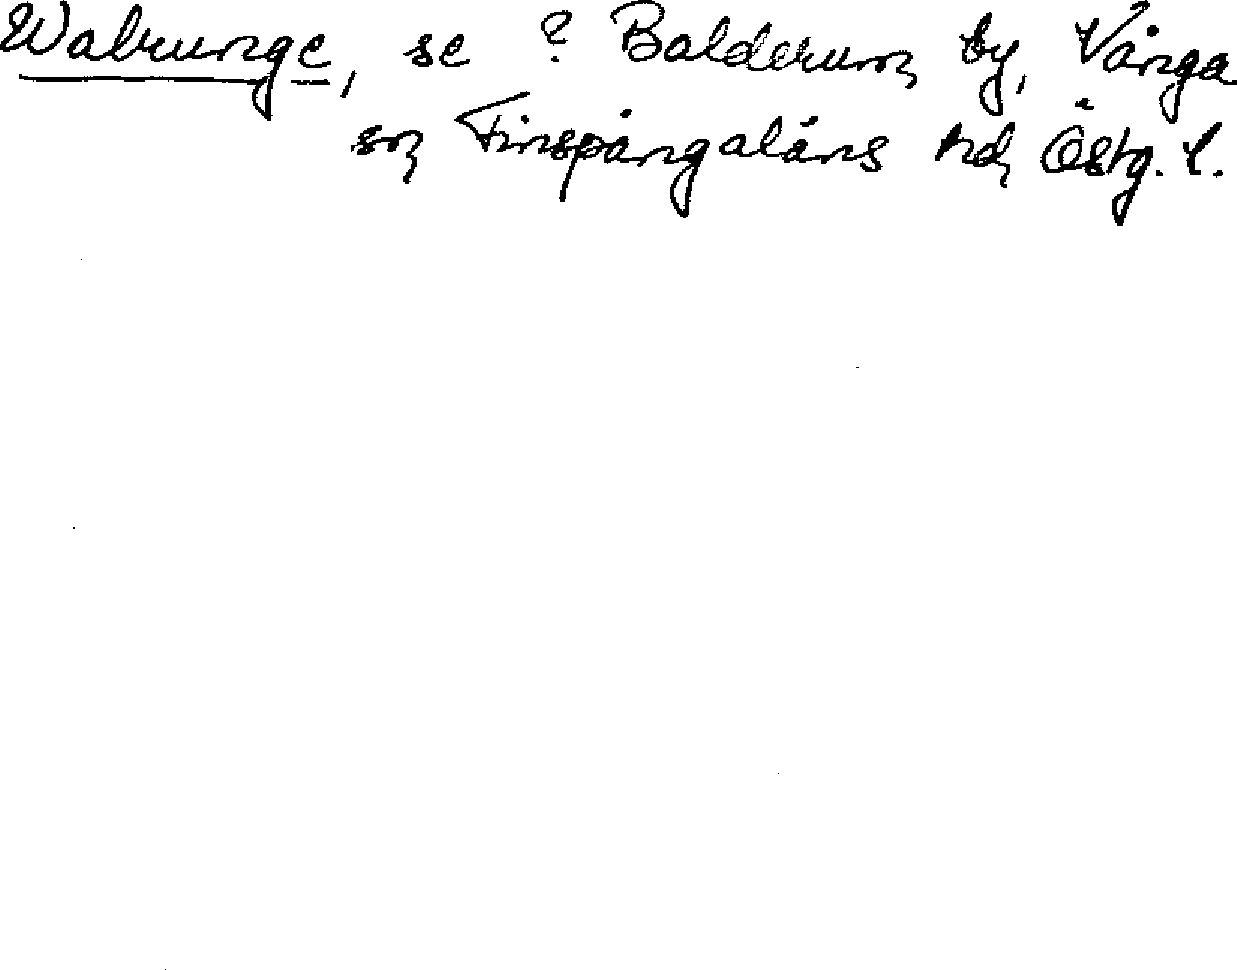 Walrunge, se ? Balderum by, Vånga
sn Finspångaläns hd, Östg. l.